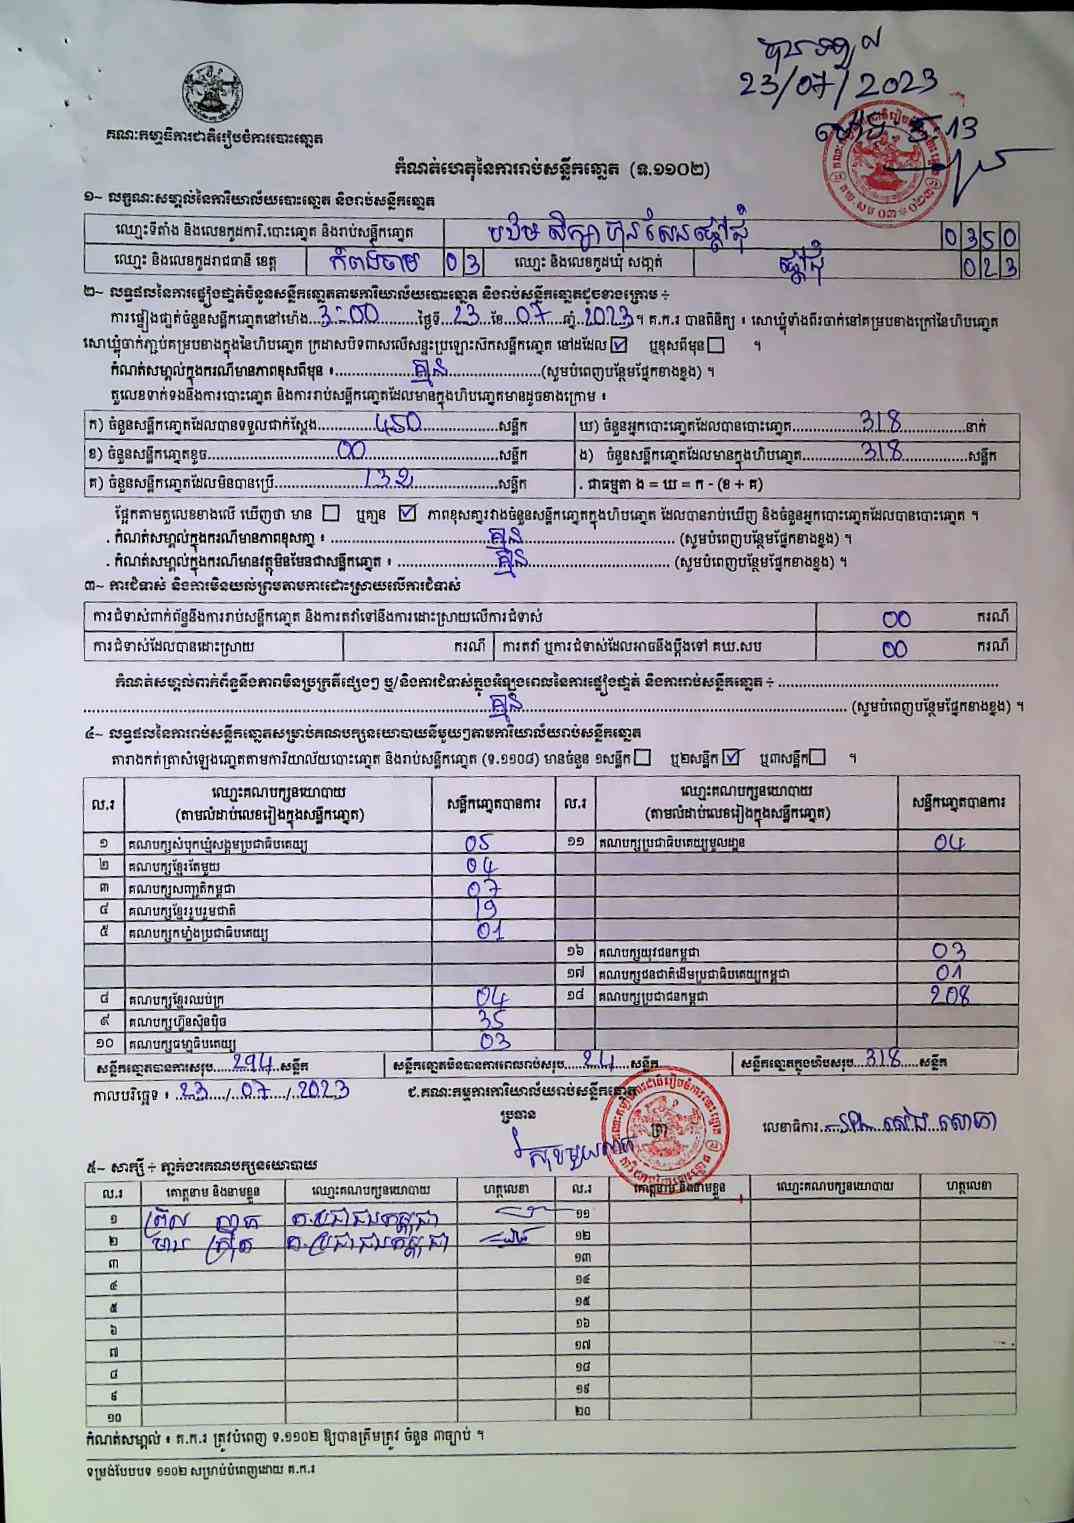 បានទទួល
23/07/2023
ម៉ោង 5:13
គណៈកម្មាធិការជាតិរៀបចំការបោះឆ្នោត
កំណត់ហេតុនៃការរាប់សន្លឹកឆ្នោត (ទ.១១០២)
១~ លក្ខណៈសម្គាល់នៃការិយាល័យបោះឆ្នោត និងរាប់សន្លឹកឆ្នោត
ឈ្មោះទីតាំង និងលេខកូដការិ.បោះឆ្នោត និងរាប់សន្លឹកឆ្នោត បឋមសិក្សា ហ៊ុន សែន ផ្ដៅជុំ 0350
ឈ្មោះ និងលេខកូដរាជធានី ខេត្ត កំពង់ចាម 03 ឈ្មោះ និងលេខកូដឃុំ សង្កាត់ ផ្ដៅជុំ 023
២~ លទ្ធផលនៃការផ្ទៀងផ្ទាត់ចំនួនសន្លឹកឆ្នោតតាមការិយាល័យបោះឆ្នោត និងរាប់សន្លឹកឆ្នោតដូចខាងក្រោម ÷
ការផ្ទៀងផ្ទាត់ចំនួនសន្លឹកឆ្នោតនៅម៉ោង...3:00...ថ្ងៃទី...23...ខែ...07...ឆ្នាំ..2023។ គ.ក.រ បានពិនិត្យ ៖ សោឃ្លុំទាំងពីរចាក់នៅគម្របខាងក្រៅនៃហិបឆ្នោត
សោឃ្លុំចាក់ភ្ជាប់គម្របខាងក្នុងនៃហិបឆ្នោត ក្រដាសបិទពាសលើសន្ទះប្រឡោះសឹកសន្លឹកឆ្នោត នៅដដែល ☑ ឬខុសពីមុន ☐ ។
កំណត់សម្គាល់ក្នុងករណីមានភាពខុសពីមុន ៖...គ្មាន...(សូមបំពេញបន្ថែមផ្នែកខាងខ្នង) ។
តួលេខទាក់ទងនឹងការបោះឆ្នោត និងការរាប់សន្លឹកឆ្នោតដែលមានក្នុងហិបឆ្នោតមានដូចខាងក្រោម ៖
ក) ចំនួនសន្លឹកឆ្នោតដែលបានទទួលជាក់ស្តែង...450...សន្លឹក ឃ) ចំនួនអ្នកបោះឆ្នោតដែលបានបោះឆ្នោត...318...នាក់
ខ) ចំនួនសន្លឹកឆ្នោតខូច...00...សន្លឹក ង) ចំនួនសន្លឹកឆ្នោតដែលមានក្នុងហិបឆ្នោត...318...សន្លឹក
គ) ចំនួនសន្លឹកឆ្នោតដែលមិនបានប្រើ...132...សន្លឹក . ជាធម្មតា ង = ឃ = ក - (ខ + គ)
ផ្អែកតាមតួលេខខាងលើ ឃើញថា មាន ☐ ឬគ្មាន ☑ ភាពខុសគ្នារវាងចំនួនសន្លឹកឆ្នោតក្នុងហិបឆ្នោត ដែលបានរាប់ឃើញ និងចំនួនអ្នកបោះឆ្នោតដែលបានបោះឆ្នោត ។
. កំណត់សម្គាល់ក្នុងករណីមានភាពខុសគ្នា ៖ ...គ្មាន... (សូមបំពេញបន្ថែមផ្នែកខាងខ្នង) ។
. កំណត់សម្គាល់ក្នុងករណីមានវត្ថុមិនមែនជាសន្លឹកឆ្នោត ៖ ...គ្មាន... (សូមបំពេញបន្ថែមផ្នែកខាងខ្នង) ។
៣~ ការជំទាស់ និងការមិនយល់ព្រមតាមការដោះស្រាយលើការជំទាស់
ការជំទាស់ពាក់ព័ន្ធនឹងការរាប់សន្លឹកឆ្នោត និងការតវ៉ាទៅនឹងការដោះស្រាយលើការជំទាស់ 00 ករណី
ការជំទាស់ដែលបានដោះស្រាយ ករណី ការតវ៉ា ឬការជំទាស់ដែលអាចនឹងប្តឹងទៅ គឃ.សប 00 ករណី
កំណត់សម្គាល់ពាក់ព័ន្ធនឹងភាពមិនប្រក្រតីផ្សេងៗ ឬ/និងការជំទាស់ក្នុងអំឡុងពេលនៃការផ្ទៀងផ្ទាត់ និងការរាប់សន្លឹកឆ្នោត ÷ ...
...គ្មាន... (សូមបំពេញបន្ថែមផ្នែកខាងខ្នង) ។
៤~ លទ្ធផលនៃការរាប់សន្លឹកឆ្នោតសម្រាប់គណបក្សនយោបាយនីមួយៗតាមការិយាល័យរាប់សន្លឹកឆ្នោត
តារាងកត់ត្រាសំឡេងឆ្នោតតាមការិយាល័យបោះឆ្នោត និងរាប់សន្លឹកឆ្នោត (ទ.១១០៨) មានចំនួន ១សន្លឹក ☐ ឬ២សន្លឹក ☑ ឬ៣សន្លឹក ☐ ។
ល.រ ឈ្មោះគណបក្សនយោបាយ (តាមលំដាប់លេខរៀងក្នុងសន្លឹកឆ្នោត) សន្លឹកឆ្នោតបានការ ល.រ ឈ្មោះគណបក្សនយោបាយ (តាមលំដាប់លេខរៀងក្នុងសន្លឹកឆ្នោត) សន្លឹកឆ្នោតបានការ
១ គណបក្សសំបុកឃ្មុំសង្គមប្រជាធិបតេយ្យ 05 ១១ គណបក្សប្រជាធិបតេយ្យមូលដ្ឋាន 04
២ គណបក្សខ្មែរតែមួយ 04
៣ គណបក្សសញ្ជាតិកម្ពុជា 07
៤ គណបក្សខ្មែររួបរួមជាតិ 19
៥ គណបក្សកម្លាំងប្រជាធិបតេយ្យ 01
១៦ គណបក្សយុវជនកម្ពុជា 03
១៧ គណបក្សជនជាតិដើមប្រជាធិបតេយ្យកម្ពុជា 01
៨ គណបក្សខ្មែរឈប់ក្រ 04 ១៨ គណបក្សប្រជាជនកម្ពុជា 208
៩ គណបក្សហ៊្វុនស៊ិនប៉ិច 35
១០ គណបក្សធម្មាធិបតេយ្យ 03
សន្លឹកឆ្នោតបានការសរុប...294...សន្លឹក សន្លឹកឆ្នោតមិនបានការពេលរាប់សរុប...24...សន្លឹក សន្លឹកឆ្នោតក្នុងហិបសរុប...318...សន្លឹក
កាលបរិច្ឆេទ ៖ ..23../..07../..2023 ជ.គណៈកម្មការការិយាល័យរាប់សន្លឹកឆ្នោត
ប្រធាន
ត្រា
លេខាធិការ
៥~ សាក្សី ÷ ភ្នាក់ងារគណបក្សនយោបាយ
ល.រ គោត្តនាម និងនាមខ្លួន ឈ្មោះគណបក្សនយោបាយ ហត្ថលេខា ល.រ គោត្តនាម និងនាមខ្លួន ឈ្មោះគណបក្សនយោបាយ ហត្ថលេខា
១ គ.ប្រជាជនកម្ពុជា ១១
២ គ.ប្រជាជនកម្ពុជា ១២
៣ ១៣
៤ ១៤
៥ ១៥
៦ ១៦
៧ ១៧
៨ ១៨
៩ ១៩
១០ ២០
កំណត់សម្គាល់ ៖ គ.ក.រ ត្រូវបំពេញ ទ.១១០២ ឱ្យបានត្រឹមត្រូវ ចំនួន ៣ច្បាប់ ។
ទម្រង់បែបបទ ១១០២ សម្រាប់បំពេញដោយ គ.ក.រ